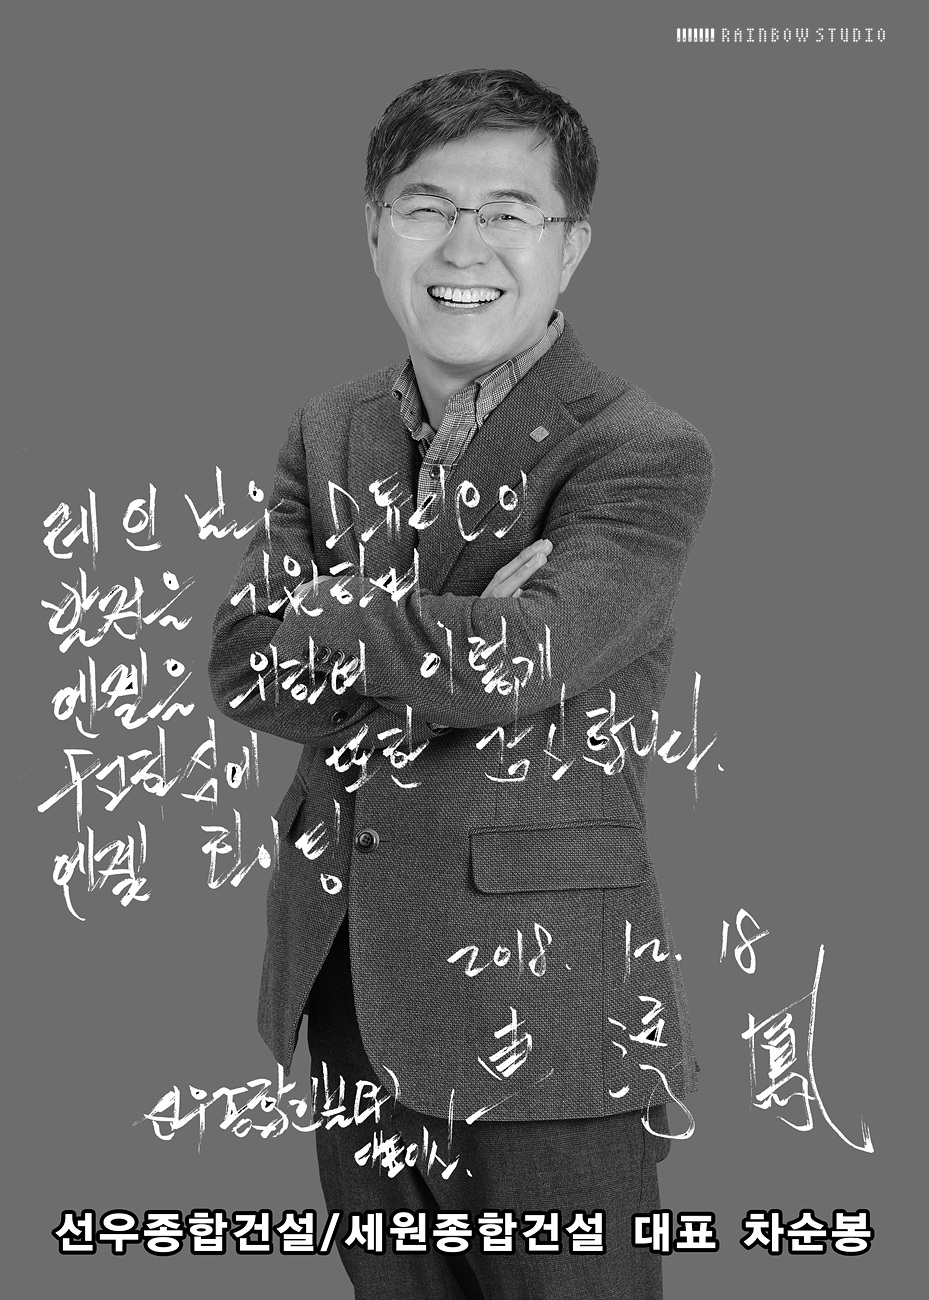 RAINBOW STUDIO
레인보우 스튜디오의
발전을 기원하며
엔젤을 위하여 이렇게
또한 감사합니다.
엔젤 화이팅
2018. 12. 18
車 淳 鳳
선우종합건설(주)
대표이사.
선우종합건설/세원종합건설 대표 차순봉